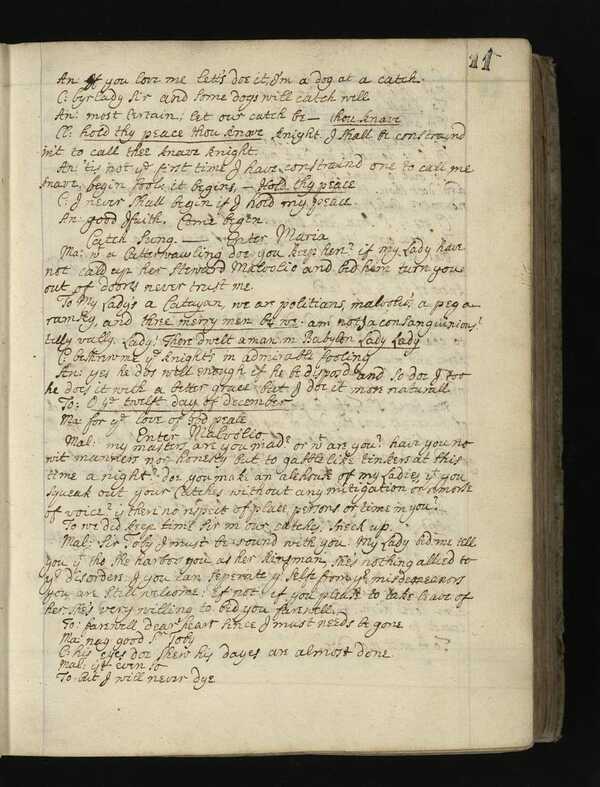 11
An: If you love me let's doe it, I'm a dog at a catch.
C: byrlady sir and some dogs will catch well
An: most certain; let our catch be — thou knave
Cl: hold thy peace thou knave knight. I shall be constraind
in't to call thee knave knight.
An: 'tis not ye first time I have constraind one to call me
knave. begin fool; it begins, — Hold thy peace
C: I never shall begin if I hold my peace.
An: good Ifaith. Come begin.
Catch sung. — Enter Maria
Ma: wt a catterwawling doe you keep hen? if my Lady have
not calld up her steward Malvolio and bid him turn you
out of doors never trust me.
To My Lady's a Catayan, we ar politians, malvolio's a peg a
ramsey, and three merry men be we. am not I a consanguinious?
tilly vally. Lady! There dwelt a man in Babylon Lady Lady
C: beshrw me ye knight's in admirable fooling
An: yes he dos well enough if he be disposd and so doe I too
he does it with a better grace but I doe it more naturall
To: O ye twelft day of december
Ma: for ye love of god peace
Enter Malvolio
Mal: my masters are you mad? or wt are you? have you no
wit manners nor honesty but to gabble like tinkers at this
time a night? doe you make an alehouse of my Ladies, yt you
squeak out your Catches without any mitigation or remorse
of voice? is there no respect of place persons or time in you?
To we did keep time sir in our catches, sneck up.
Mal: Sir Toby I must be round with you. My Lady bid me tell
you yt tho she harbor you as her kinsman, she's nothing allied to
yr disorders. if you can seperate yr self from yr misdemeanors
you are still welcome: If not if you please to take leave of
her she's very willing to bid you farewell.
To: farewell dear heart since I must needs be gone
Ma: nay good Sr Toby
C: his eyes doe shew his dayes are almost done.
Mal: is't even so
To: but I will never dye